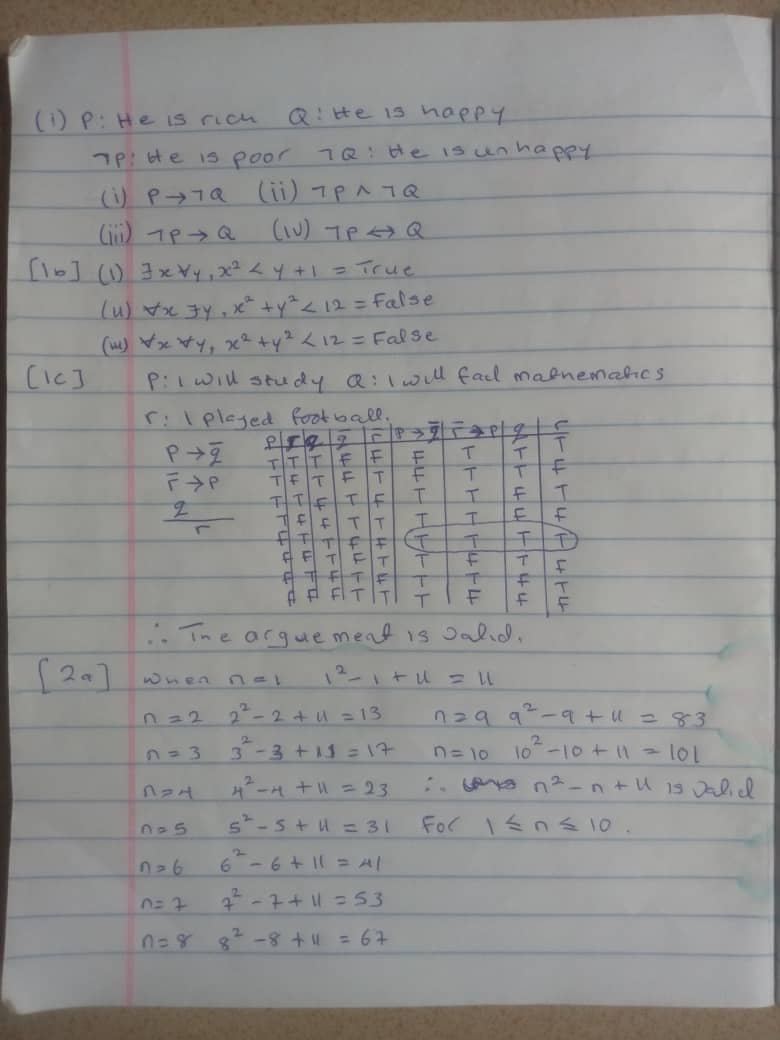 (i) P: He is rich Q: He is happy
¬P: He is poor ¬Q: He is unhappy
(i) P→¬Q (ii) ¬P ∧ ¬Q
(iii) ¬P → Q (iv) ¬P ↔ Q
[1b] (i) ∃x∀y, x² < y+1 = True
(ii) ∀x ∃y, x² + y² < 12 = False
(iii) ∀x ∀y, x² + y² < 12 = False
[1c] P: I will study Q: I will fail mathematics
r: I played football.
P → q̄
r̄ → P
q
r
P r q q̄ r̄ P→q̄ r̄→P q r
T T T F F F T T T
T F T F T F T T F
T T F T F T T F T
T F F T T T T F F
F T T F F T T T T
F F T F T T F T F
F T F T F T T F T
F F F T T T F F F
∴ The arguement is valid.
[2a] when n=1 1²-1+11 = 11
n=2 2²-2+11 = 13 n=9 9²-9+11 = 83
n=3 3²-3+11 = 17 n=10 10²-10+11 = 101
n=4 4²-4+11 = 23 ∴ n²-n+11 is valid
n=5 5²-5+11 = 31 For 1 ≤ n ≤ 10.
n=6 6²-6+11 = 41
n=7 7²-7+11 = 53
n=8 8²-8+11 = 67